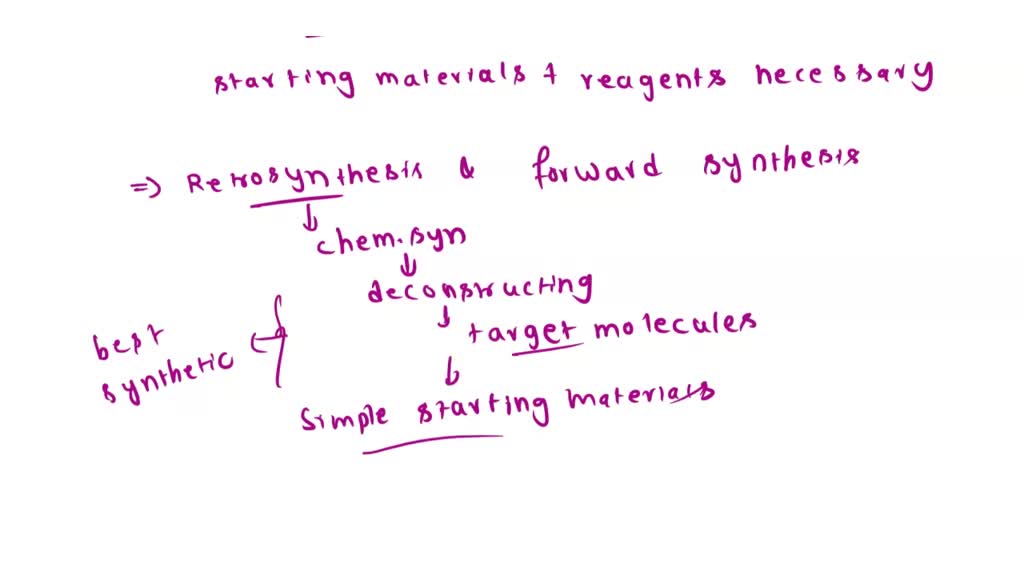 starting materials + reagents necessary
⇒ Retrosynthesis & forward synthesis
↓
chem.syn
↓
deconstructing
↓
target molecules
↓
best
synthetic
simple starting materials